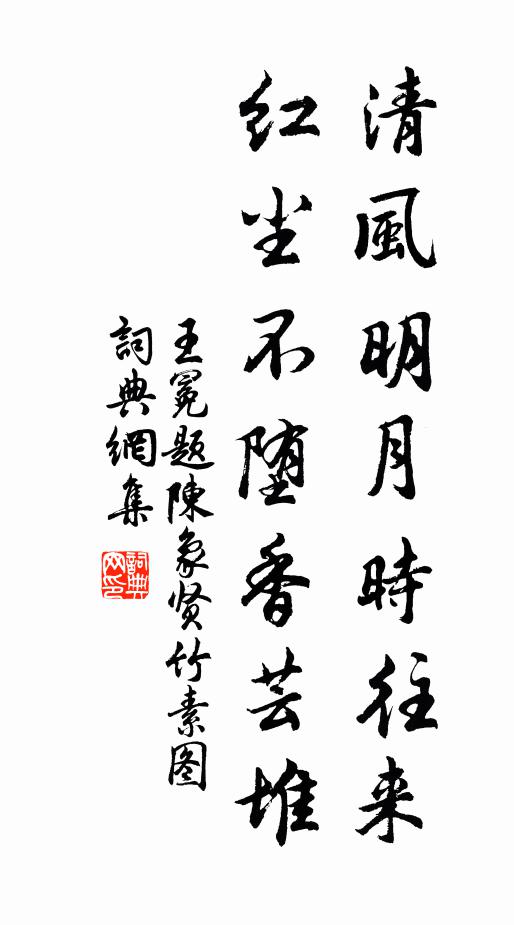 清風明月時往来
红尘不堕香芸堆
王冕题陳象贤竹素图
詞典網集
詞典
网印